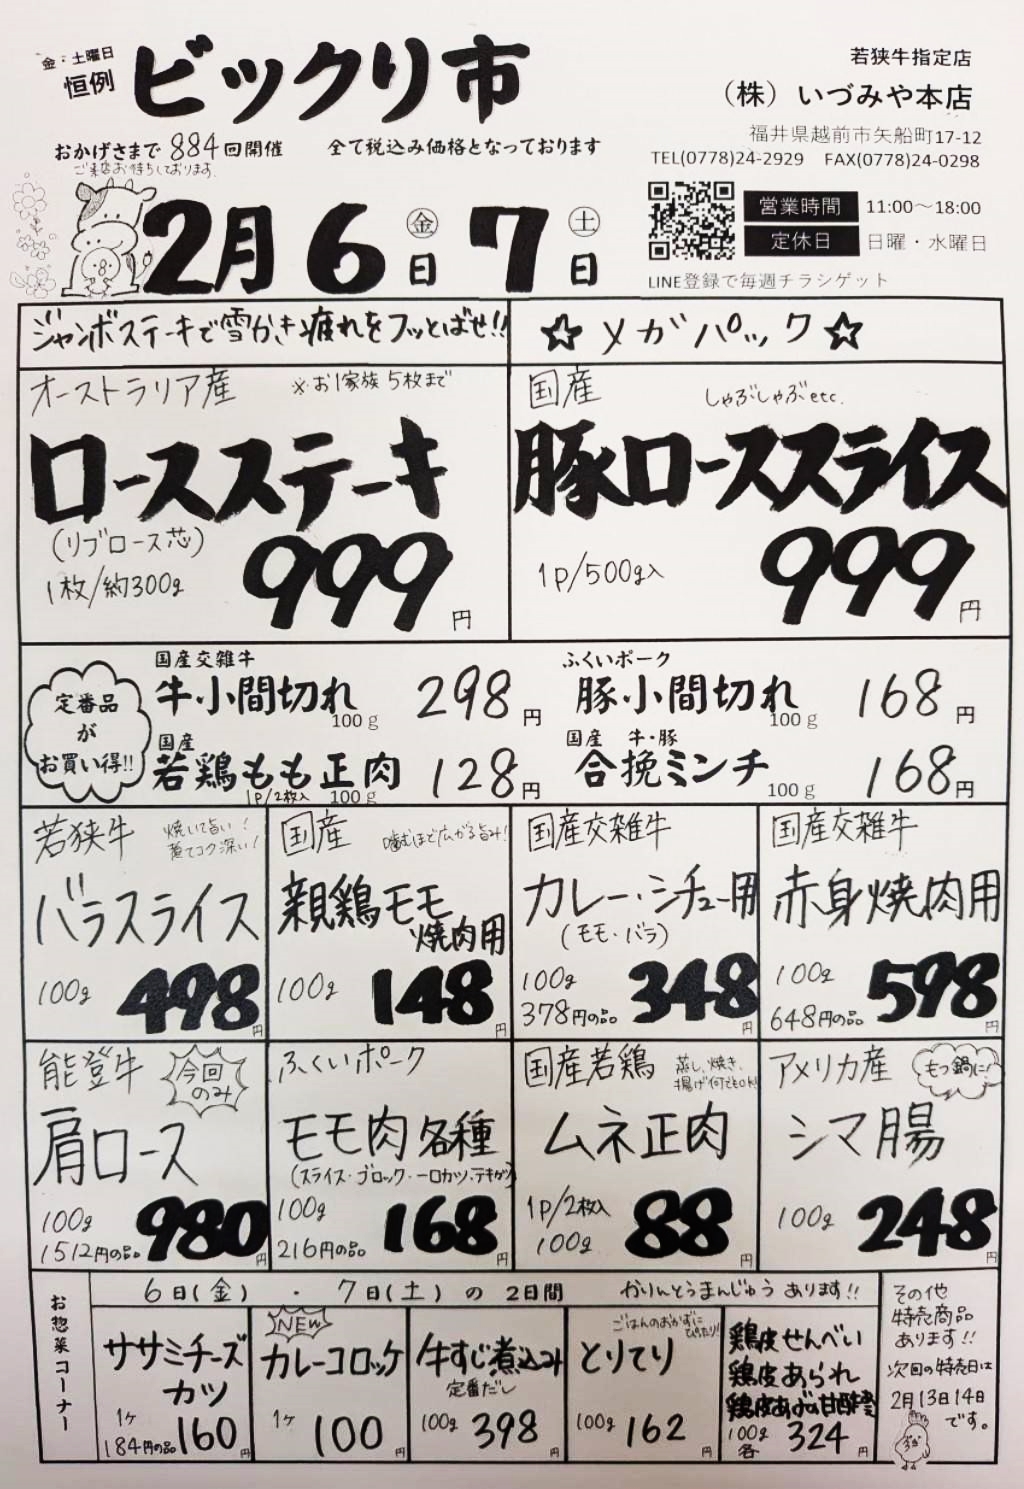 金・土曜日
恒例
ビックリ市
おかげさまで884回開催
全て税込み価格となっております
ご来店お待ちしております
若狭牛指定店
（株）いづみや本店
福井県越前市矢船町17-12
TEL(0778)24-2929 FAX(0778)24-0298
営業時間 11:00～18:00
定休日 日曜・水曜日
LINE登録で毎週チラシゲット
2月6日㊎7日㊏
ジャンボステーキで雪かき疲れをフッとばせ!!
☆メガパック☆
オーストラリア産
※お1家族5枚まで
ロースステーキ
(リブロース芯)
1枚/約300g
999円
国産
しゃぶしゃぶetc.
豚ローススライス
1p/500g入
999円
定番品
が
お買い得!!
国産交雑牛
牛小間切れ
100g
298円
ふくいポーク
豚小間切れ
100g
168円
国産
若鶏もも正肉
1p/2枚入 100g
128円
国産 牛・豚
合挽ミンチ
100g
168円
若狭牛
焼いて旨い!
煮てコク深い!
バラスライス
100g
498円
国産
噛むほど広がる旨み!
親鶏モモ
焼肉用
100g
148円
国産交雑牛
カレー・シチュー用
(モモ・バラ)
100g
378円の品
348円
国産交雑牛
赤身焼肉用
100g
648円の品
598円
能登牛
今回
のみ
肩ロース
100g
1512円の品
980円
ふくいポーク
モモ肉各種
(スライス・ブロック・一口カツ・テキカツ)
100g
216円の品
168円
国産若鶏
蒸し、焼き、
揚げ何でもOK!
ムネ正肉
1p/2枚入
100g
88円
アメリカ産
もつ鍋に!
シマ腸
100g
248円
お惣菜コーナー
6日(金)・7日(土)の2日間 かりんとうまんじゅうあります!!
ササミチーズ
カツ
1ケ
184円の品
160円
NEW
カレーコロッケ
1ケ
100円
牛すじ煮込み
定番だし
100g
398円
ごはんのおかずに
ぴったり!
とりてり
100g
162円
鶏皮せんべい
鶏皮あられ
100g
各
324円
その他
特売商品
あります!!
次回の特売日は
2月13日14日
です。